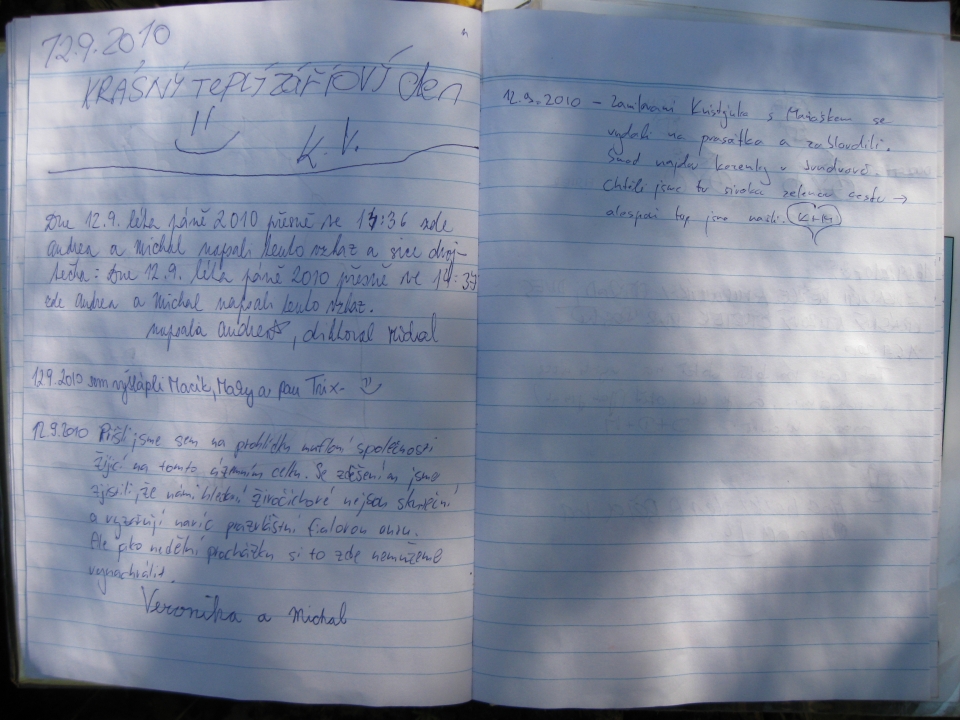 12.9.2010
KRÁSNÝ TEPLÍ ZÁŘÍOVÝ den
K.V.
Dne 12.9. léta páně 2010 přesně ve 14:36 zde
Andrea a Michal napsali tento vzkaz a sice dvoj-
tečka: Dne 12.9. léta páně 2010 přesně ve 14:37
zde Andrea a Michal napsali tento vzkaz.
napsala Andrea, diktoval Michal
12.9.2010 sem výšlápli Macík, Mary a pan Trix-
12.9.2010 Přišli jsme sem na prohlídku mufloní společnosti
žijící na tomto územním celku. Se zděšením jsme
zjistili, že námi hledaní živočichové nejsou
a vyzařují navíc prazvláštní fialovou auru.
Ale jako nedělní procházku si to zde nemůžeme
vynachválit.
Veronika a Michal
12.9.2010 – Zamilovaní Kristýnka s Matoškem se
vydali na prasátka a zabloudili.
Snad najdu kozenky v
Chtěli jsme tu širokou zelenou cestu →
alespoň top jsme našli. K+M